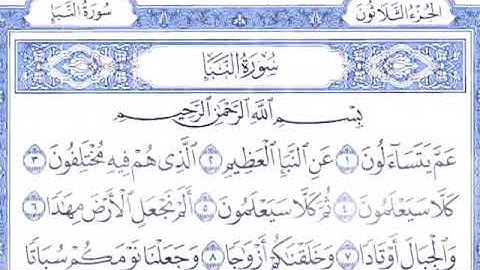 الجُزْءُ الثَّلَاثُونَ سُورَةُ النَّبَإِ
سُورَةُ النَّبَإِ
بِسْمِ ٱللَّهِ ٱلرَّحْمَٰنِ ٱلرَّحِيمِ
عَمَّ يَتَسَآءَلُونَ ١ عَنِ ٱلنَّبَإِ ٱلْعَظِيمِ ٢ ٱلَّذِى هُمْ فِيهِ مُخْتَلِفُونَ ٣
كَلَّا سَيَعْلَمُونَ ٤ ثُمَّ كَلَّا سَيَعْلَمُونَ ٥ أَلَمْ نَجْعَلِ ٱلْأَرْضَ مِهَٰدًا ٦
وَٱلْجِبَالَ أَوْتَادًا ٧ وَخَلَقْنَٰكُمْ أَزْوَٰجًا ٨ وَجَعَلْنَا نَوْمَكُمْ سُبَاتًا